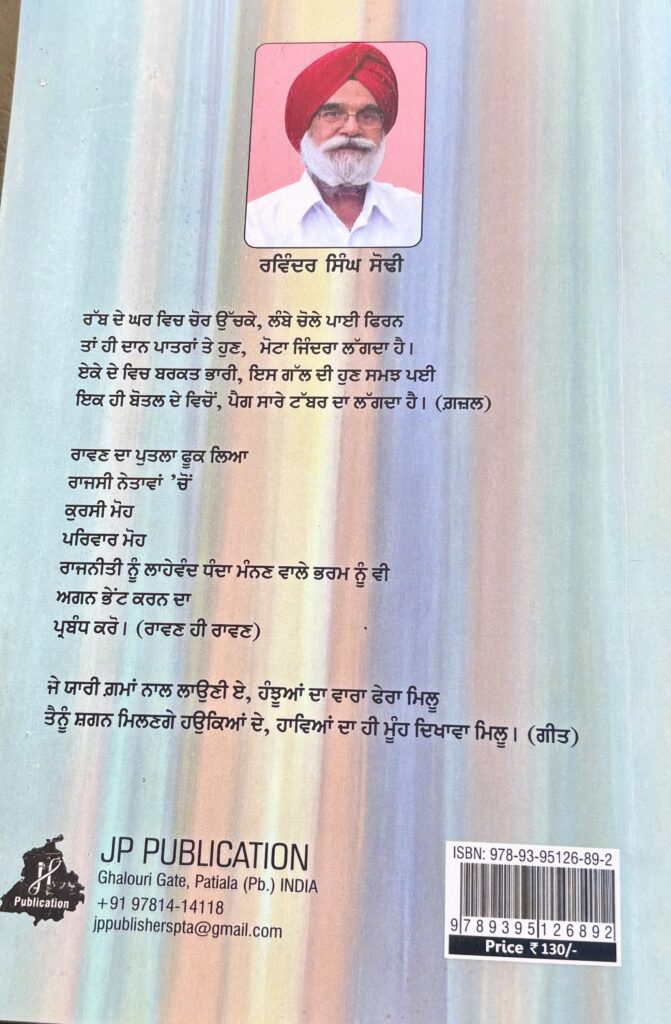 ਰਵਿੰਦਰ ਸਿੰਘ ਸੋਢੀ
ਰੱਬ ਦੇ ਘਰ ਵਿਚ ਚੋਰ ਉੱਚਕੇ, ਲੰਬੇ ਚੋਲੇ ਪਾਈ ਫਿਰਨ
ਤਾਂ ਹੀ ਦਾਨ ਪਾਤਰਾਂ ਤੇ ਹੁਣ, ਮੋਟਾ ਜਿੰਦਰਾ ਲੱਗਦਾ ਹੈ।
ਏਕੇ ਦੇ ਵਿਚ ਬਰਕਤ ਭਾਰੀ, ਇਸ ਗੱਲ ਦੀ ਹੁਣ ਸਮਝ ਪਈ
ਇਕ ਹੀ ਬੋਤਲ ਦੇ ਵਿਚੋਂ, ਪੈਗ ਸਾਰੇ ਟੱਬਰ ਦਾ ਲੱਗਦਾ ਹੈ। (ਗ਼ਜ਼ਲ)
ਰਾਵਣ ਦਾ ਪੁਤਲਾ ਫੂਕ ਲਿਆ
ਰਾਜਸੀ ਨੇਤਾਵਾਂ ’ਚੋਂ
ਕੁਰਸੀ ਮੋਹ
ਪਰਿਵਾਰ ਮੋਹ
ਰਾਜਨੀਤੀ ਨੂੰ ਲਾਹੇਵੰਦ ਧੰਦਾ ਮੰਨਣ ਵਾਲੇ ਭਰਮ ਨੂੰ ਵੀ
ਅਗਨ ਭੇਂਟ ਕਰਨ ਦਾ
ਪ੍ਰਬੰਧ ਕਰੋ। (ਰਾਵਣ ਹੀ ਰਾਵਣ)
ਜੇ ਯਾਰੀ ਗ਼ਮਾਂ ਨਾਲ ਲਾਉਣੀ ਏ, ਹੰਝੂਆਂ ਦਾ ਵਾਰਾ ਫੇਰਾ ਮਿਲੂ
ਤੈਨੂੰ ਸ਼ਗਨ ਮਿਲਣਗੇ ਹਉਕਿਆਂ ਦੇ, ਹਾਵਿਆਂ ਦਾ ਹੀ ਮੂੰਹ ਦਿਖਾਵਾ ਮਿਲੂ। (ਗੀਤ)
JP PUBLICATION
Ghalouri Gate, Patiala (Pb.) INDIA
+91 97814-14118
jppublisherspta@gmail.com
Publication
ISBN: 978-93-95126-89-2
9 789395 126892
Price ₹ 130/-